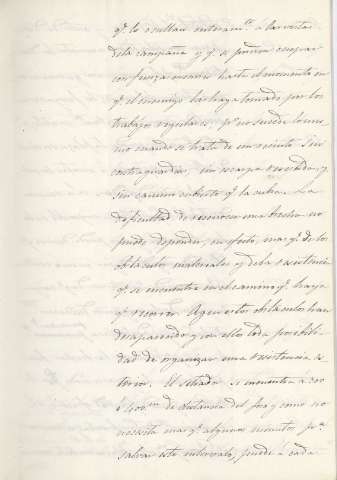 qe. lo ocultan enteramte. á las vistas
dela campaña y qe. se pueden ocupar
con fuerza menores hasta el momento en
qe. el enemigo las haya tomado por los
trabajos regulares; po. no sucede lo mis
mo cuando se trata de un recinto sin
contraguardias, sin escarpa revestida, y
sin camino cubierto qe. la cubra. La
dificultad de reconocer una brecha no
puede depender, en efecto, mas qe. de los
obstáculos materiales y dela resistencia
qe. se encuentra en el camino qe. haya
qe. recorrer. Aqui estos obstáculos han
desaparecido y con ellos toda posibili
dad de organizar una resistencia es
terior. El sitiador se encuentra á 300
ó 400 m. de distancia del foso y como no
necesita mas qe. algunos minutos pa.
salvar este intervalo, puede á cada